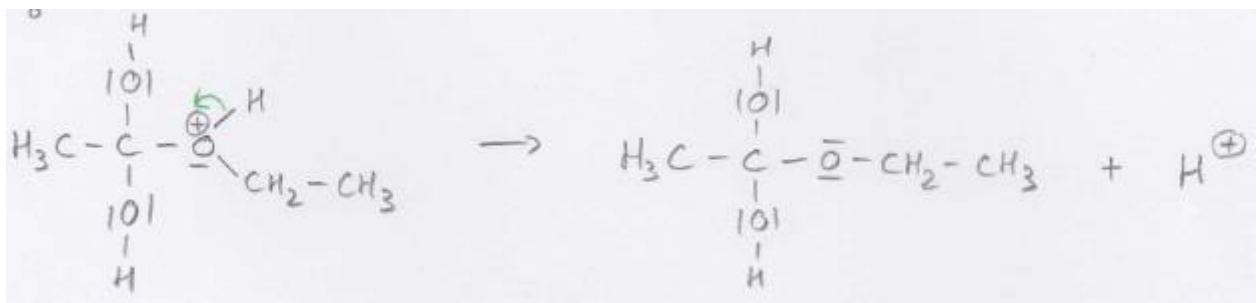 H
|O|
⊕ H
H₃C – C – O
CH₂ – CH₃
|O|
H
→
H
|O|
H₃C – C – O – CH₂ – CH₃ + H⊕
|O|
H